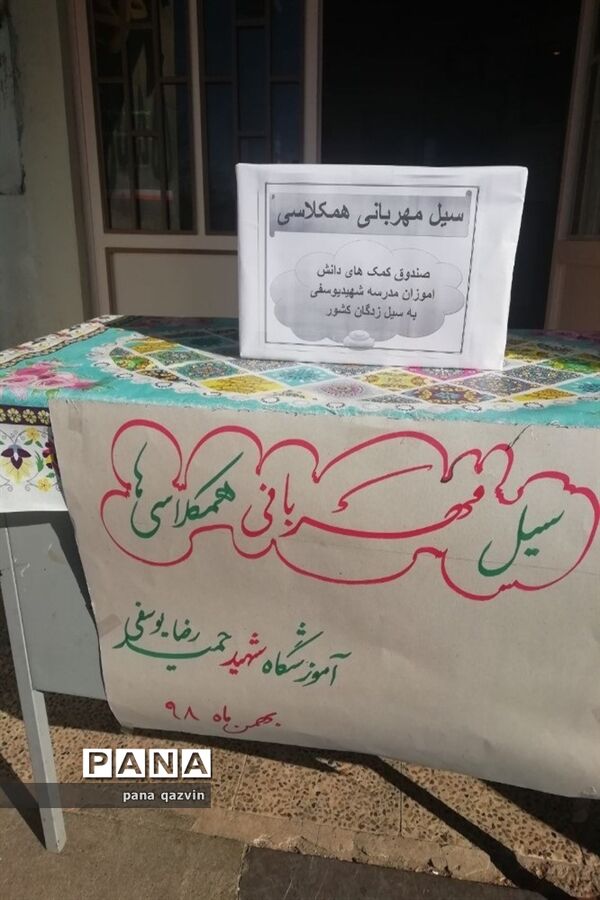 سیل مهربانی همکلاسی
صندوق کمک های دانش
اموزان مدرسه شهیدیوسفی
به سیل زدگان کشور
سیل مهربانی همکلاسی ها
آموزشگاه شهید حمید رضا یوسفی
بهمن ماه ۹۸
PANA
pana qazvin